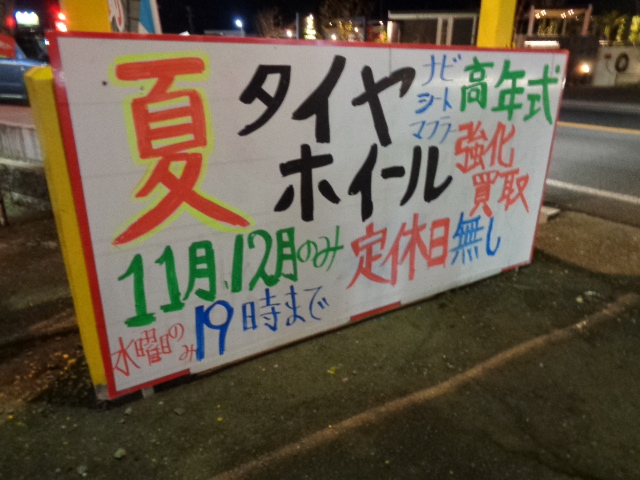 夏 タイヤ ホイール
ナビ
シート
マフラー
高年式
強化
買取
11月、12月のみ 定休日無し
水曜日のみ 19時まで